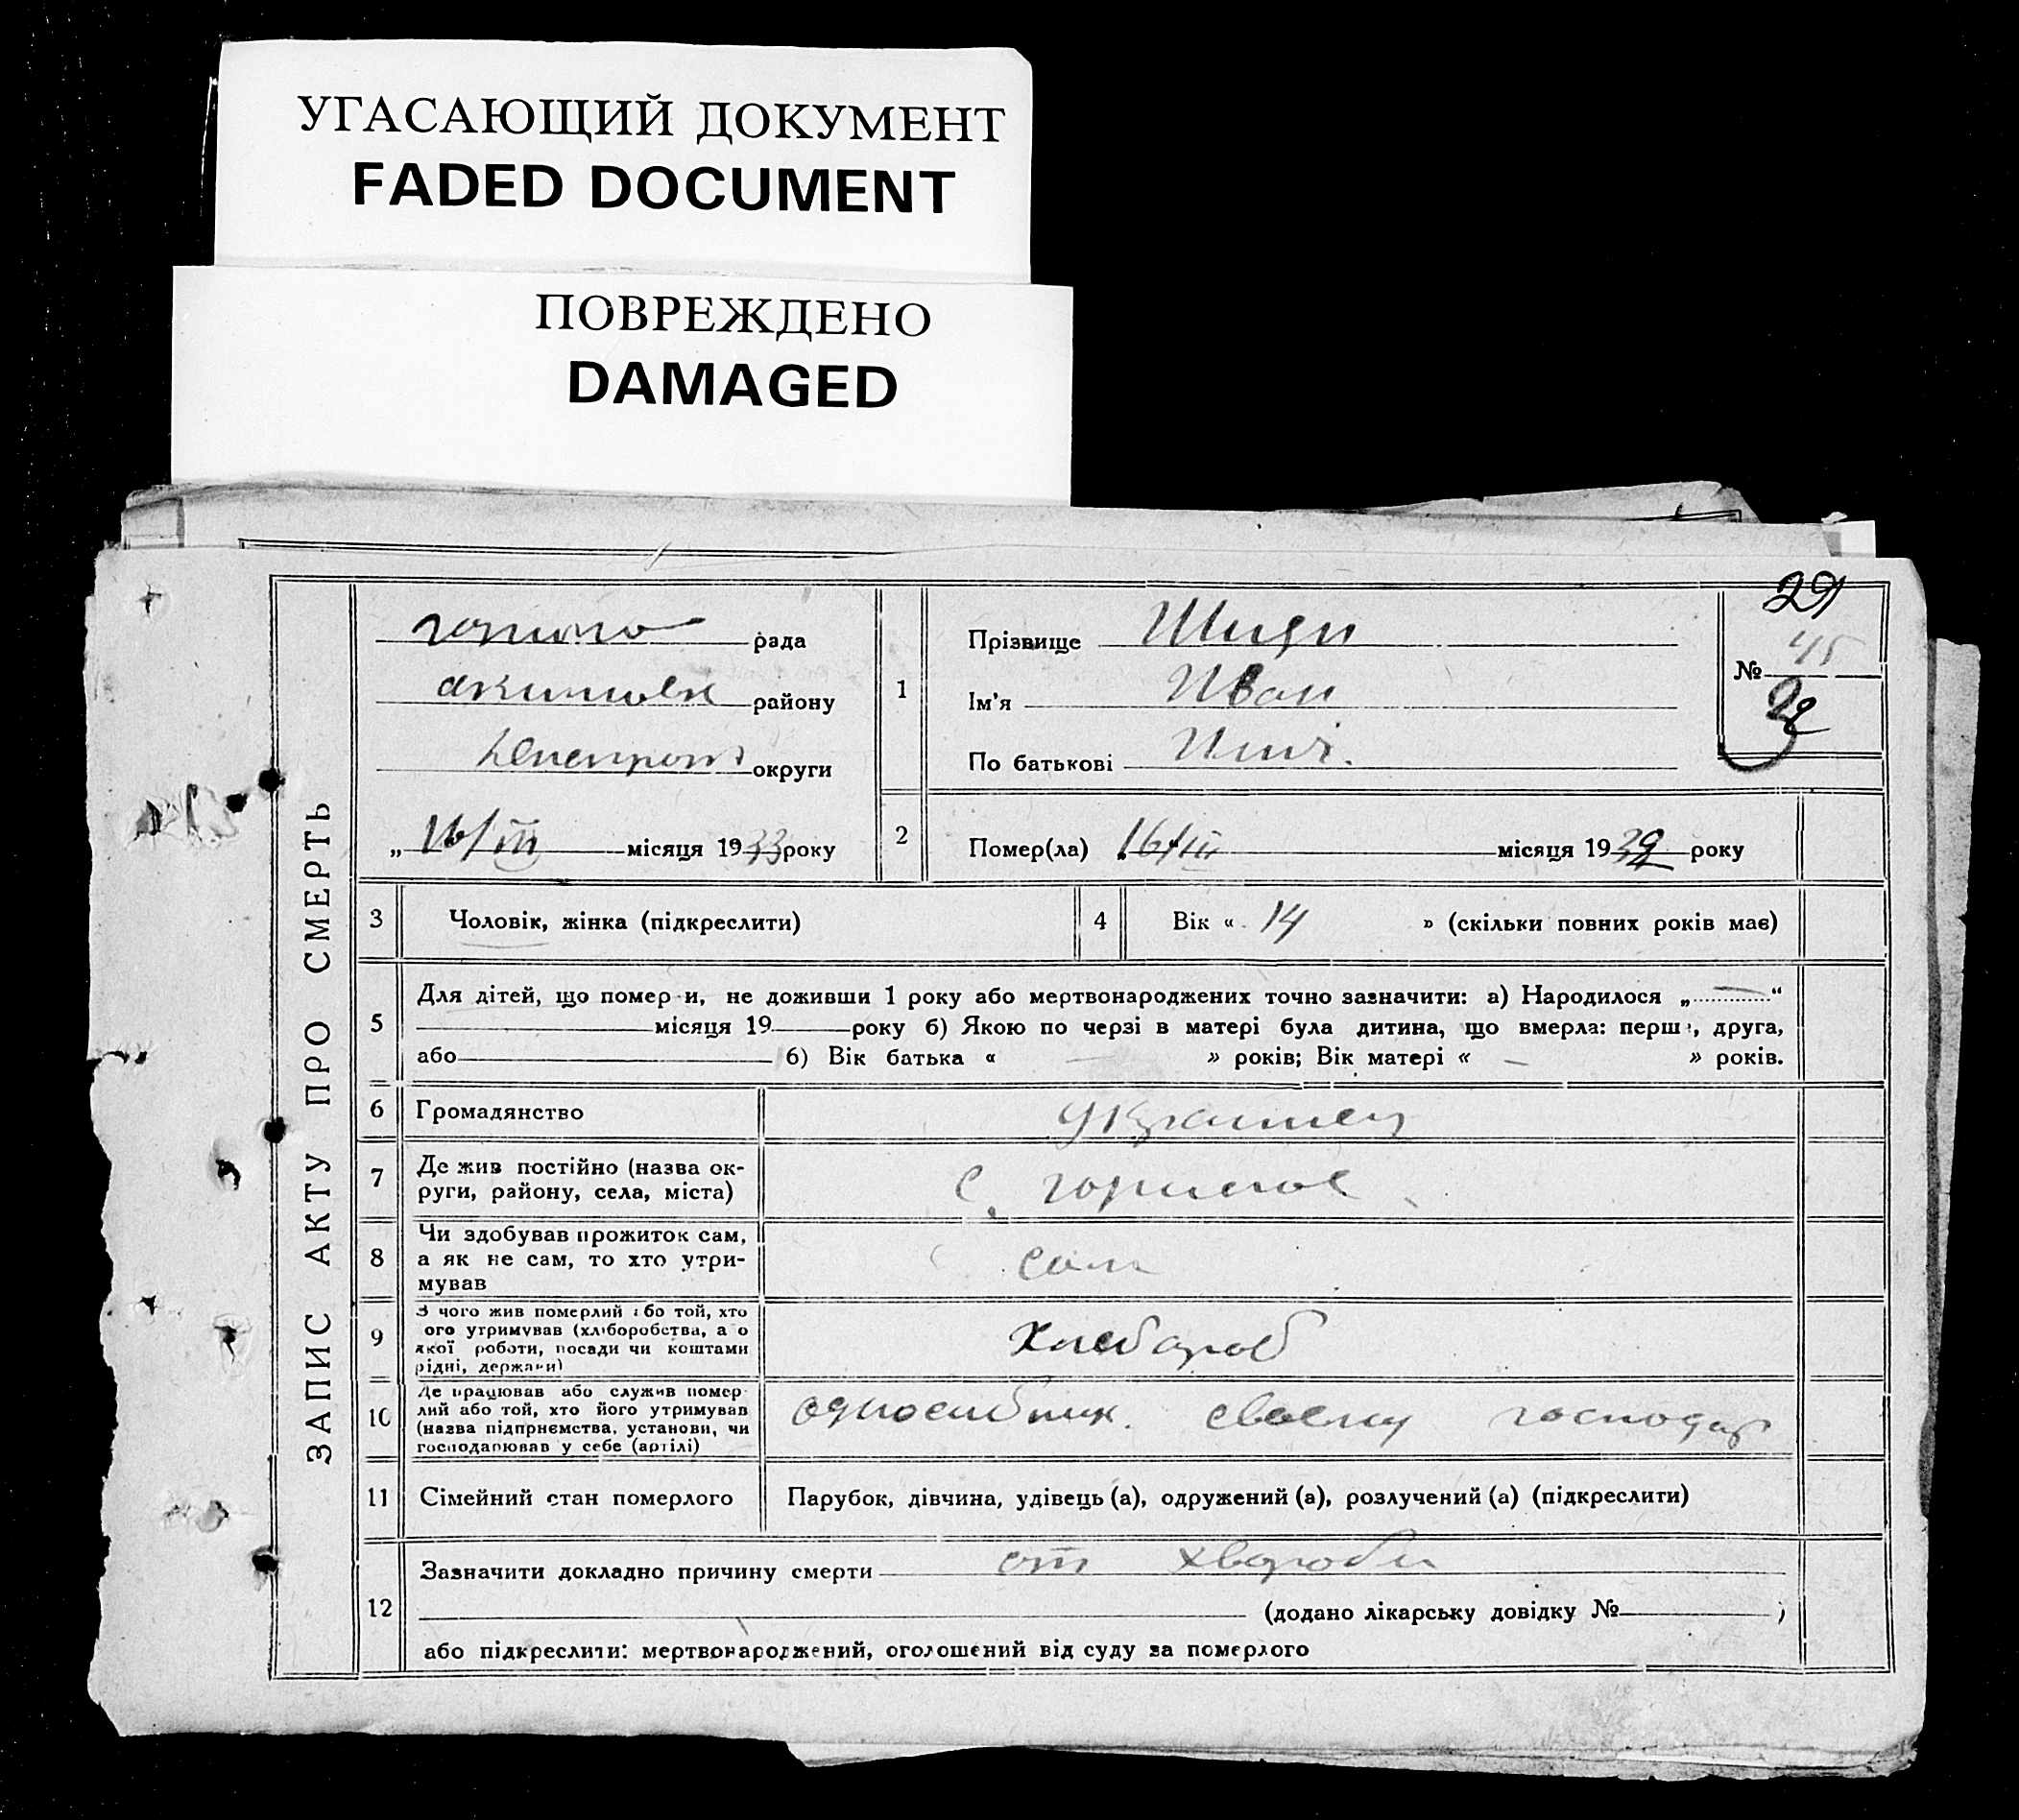 УГАСАЮЩИЙ ДОКУМЕНТ
FADED DOCUMENT
ПОВРЕЖДЕНО
DAMAGED
ЗАПИС АКТУ ПРО СМЕРТЬ
рада
району
округи
„ 16/III місяця 1933 року
29
№ 45
28
1
Прізвище
Ім'я Иван
По батькові
2 Помер(ла) „ 16/III місяця 19 року
3 Чоловік, жінка (підкреслити)
4 Вік « 14 » (скільки повних років має)
5 Для дітей, що помер и, не доживши 1 року або мертвонароджених точно зазначити: а) Народилося „ — “
місяця 19 року б) Якою по черзі в матері була дитина, що вмерла: перш , друга,
або б) Вік батька « — » років; Вік матері « — » років.
6 Громадянство украинец
7 Де жив постійно (назва ок-
руги, району, села, міста)
с.
8 Чи здобував прожиток сам,
а як не сам, то хто утри-
мував
сам
9 З чого жив померлий або той, хто
ого утримував (хліборобства, а о
якої роботи, посади чи коштами
рідні, держави)
хлебороб
10 Де працював або служив помер
лий або той, хто його утримував
(назва підприємства, установи, чи
господарював у себе (артілі)
своему господар
11 Сімейний стан померлого Парубок, дівчина, удівець (а), одружений (а), розлучений (а) (підкреслити)
12 Зазначити докладно причину смерти от хвороби
(додано лікарську довідку № )
або підкреслити: мертвонароджений, оголошений від суду за померлого